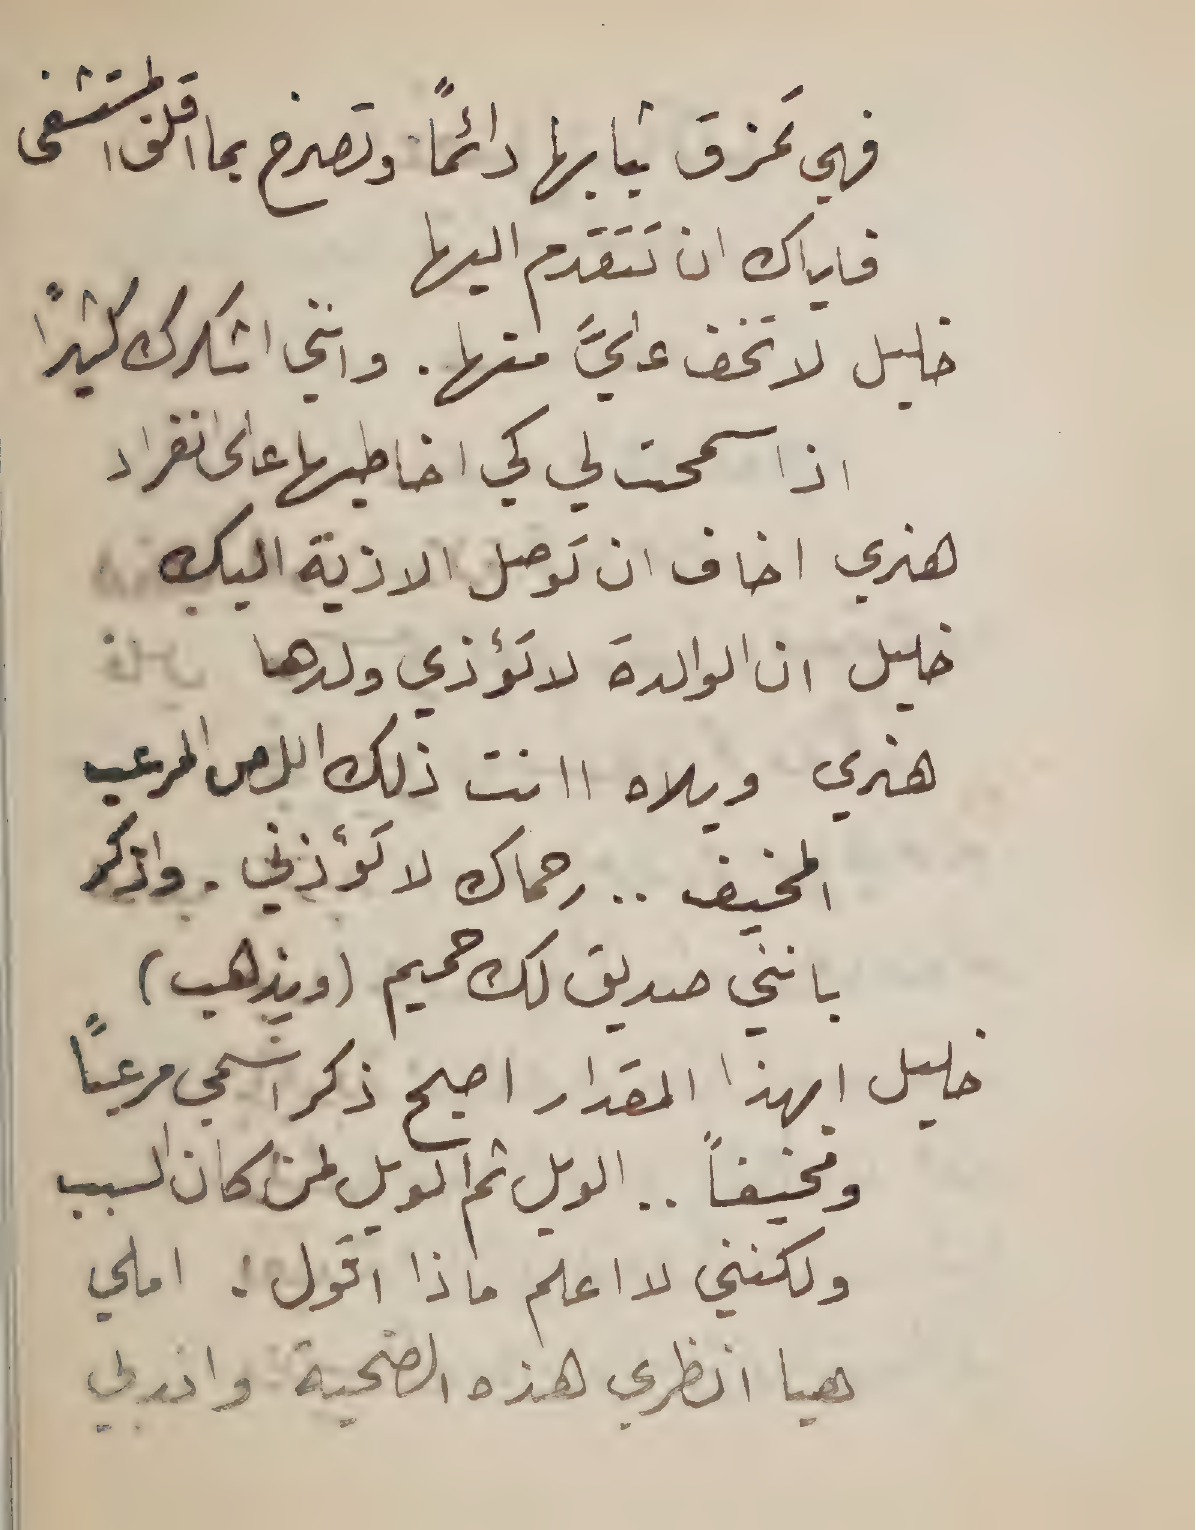 فهي تمزق ثيابها دائماً وتصرخ بما اقلق المستشفى
فاياك ان تتقدم اليها
خليل لا تخف عليَّ منها . وانني اشكرك كثيراً
اذا سمحت لي كي اخاطبها على انفراد
هنري اخاف ان توصل الاذية اليك
خليل ان الوالدة لا تؤذي ولدها
هنري ويلاه اانت ذلك اللص المرعب
المخيف .. رحماك لا تؤذني . واذكر
بانني صديق لك حميم (ويذهب)
خليل ابهذا المقدار اصبح ذكر اسمي مرعباً
ومخيفاً .. الويل ثم الويل لمن كان السبب
ولكنني لا اعلم ماذا اقول ! املي
هيا انظري هذه الضحية واندبي